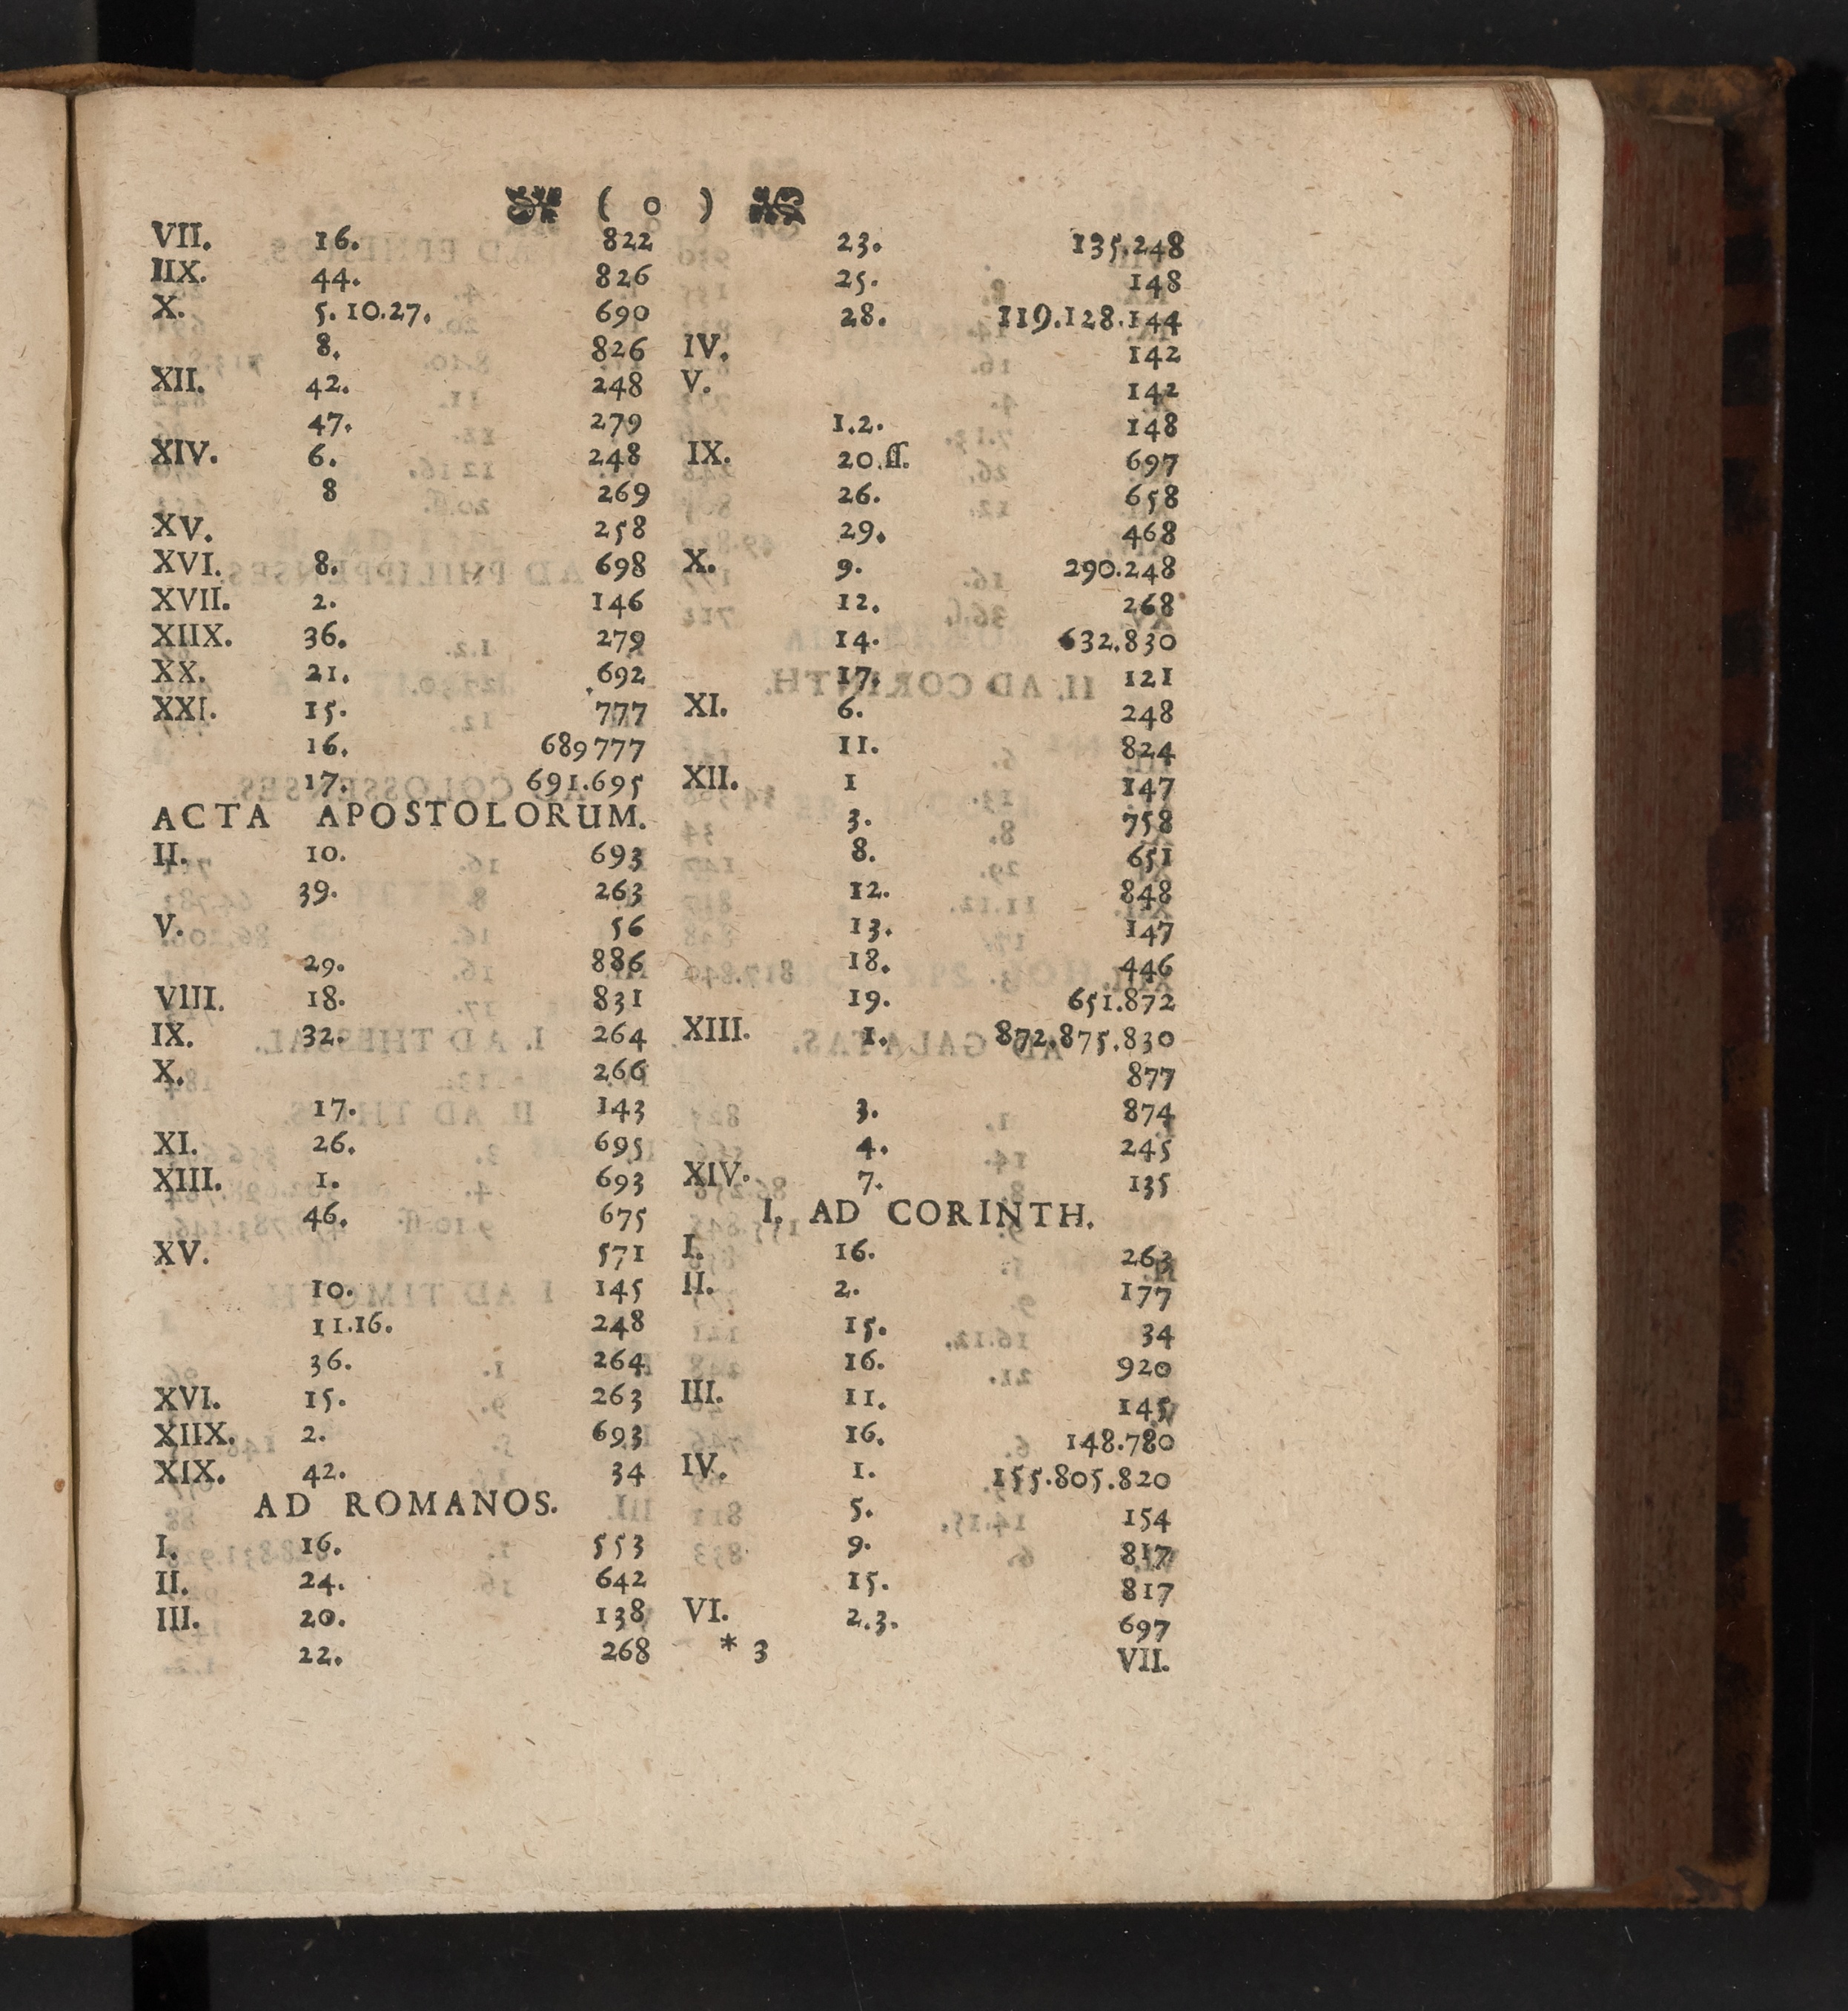 ( o )
VII. 16. 822
IIX. 44. 826
X. 5.10.27. 690
8. 826
XII. 42. 248
47. 279
XIV. 6. 248
8 269
XV. 258
XVI. 8. 698
XVII. 2. 146
XIIX. 36. 279
XX. 21. 692
XXI. 15. 777
16. 689777
17. 691.695
ACTA APOSTOLORUM.
II. 10. 693
39. 263
V. 56
29. 886
VIII. 18. 831
IX. 32. 264
X. 266
17. 143
XI. 26. 695
XIII. 1. 693
46. 675
XV. 571
10. 145
11.16. 248
36. 264
XVI. 15. 263
XIIX. 2. 693
XIX. 42. 34
AD ROMANOS.
I. 16. 553
II. 24. 642
III. 20. 138
22. 268
23. 135.248
25. 148
28. 119.128.144
IV. 142
V. 142
1.2. 148
IX. 20.ſſ. 697
26. 658
29. 468
X. 9. 290.248
12. 268
14. 632.830
17. 121
XI. 6. 248
11. 824
XII. 1 147
3. 758
8. 651
12. 848
13. 147
18. 446
19. 651.872
XIII. 1. 872.875.830
877
3. 874
4. 245
XIV. 7. 135
I. AD CORINTH.
I. 16. 263
II. 2. 177
15. 34
16. 920
III. 11. 145
16. 148.780
IV. 1. 155.805.820
5. 154
9. 817
15. 817
VI. 2.3. 697
* 3 VII.